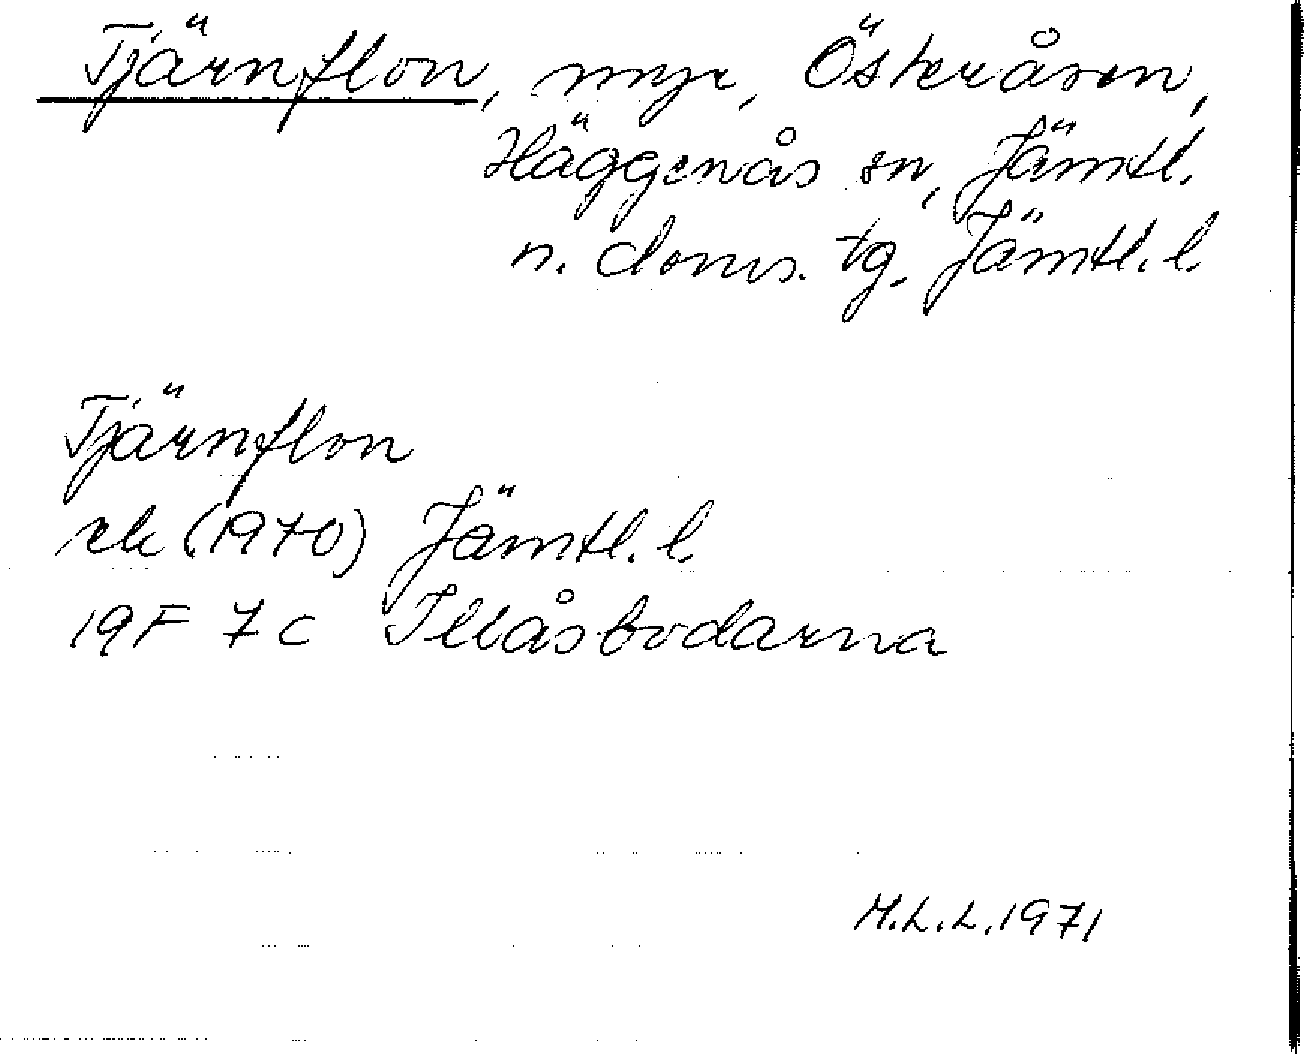 Tjärnflon, myr, Österåsen,
Häggenås sn, Jämtl.
n. doms. tg. Jämtl. l.
Tjärnflon
rek (1970) Jämtl. l.
19F 7c Illåsbodarna
M.L.L. 1971